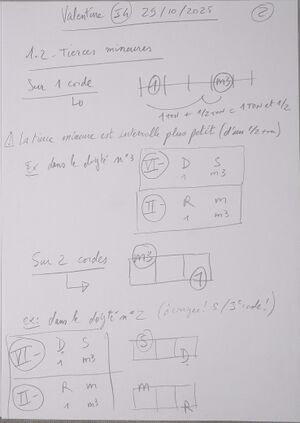 Valentine (S4) 25/10/2025 (2)
1.2 - Tierces mineures
Sur 1 corde
1 m3
1 ton + 1/2 ton = 1 TON et 1/2
⚠ La tierce mineure est intervalle plus petit (d'un 1/2 ton)
Ex dans le doigté n°3
VI- D S
1 m3
II- R m
1 m3
Sur 2 cordes
m3
1
ex: dans le doigté n°2 (à corriger! S/3e corde!)
VI- D S
1 m3
S
D
II- R m
1 m3
m
R